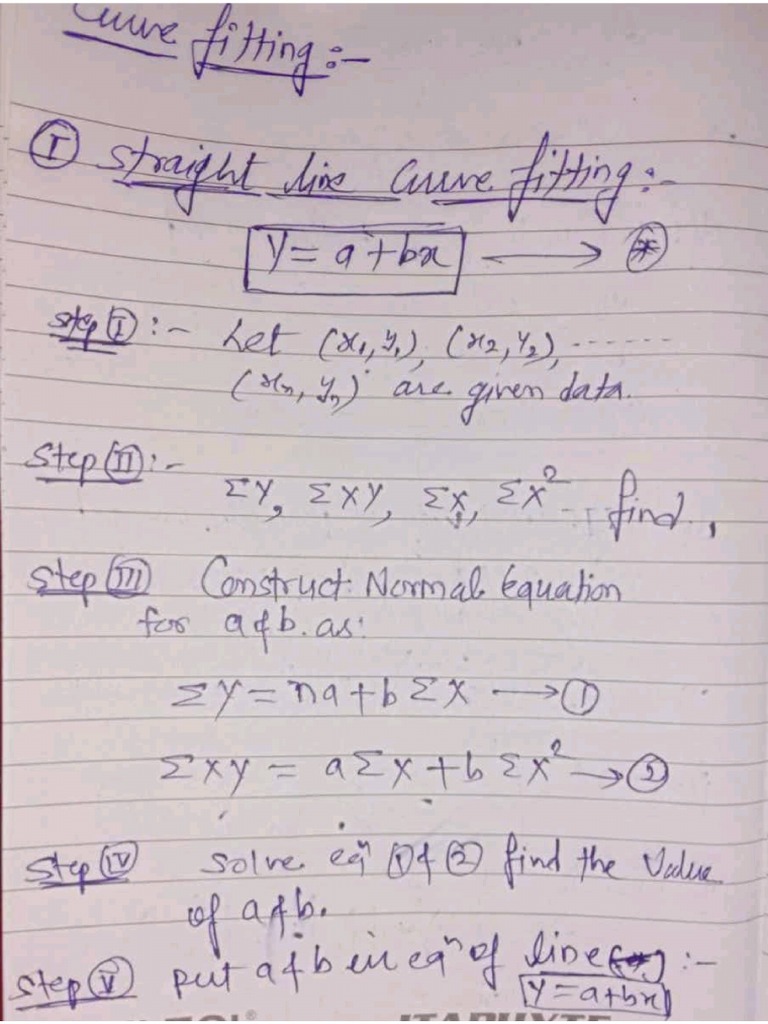 Curve fitting :-
Ⓘ straight line Curve fitting :-
y = a + bx ⟶ ⊛
step Ⓘ :- Let (x₁, y₁), (x₂, y₂), ........
(xₙ, yₙ) are given data.
Step Ⅱ :-
ΣY, ΣXY, ΣX, ΣX² find,
Step Ⅲ Construct Normal Equation
for a & b. as:
ΣY = na + b ΣX ⟶ ①
ΣXY = a ΣX + b ΣX² ⟶ ②
Step Ⅳ solve eqⁿ ① & ② find the Value
of a & b.
Step Ⅴ put a & b in eqⁿ of line (*) :-
y = a + bx